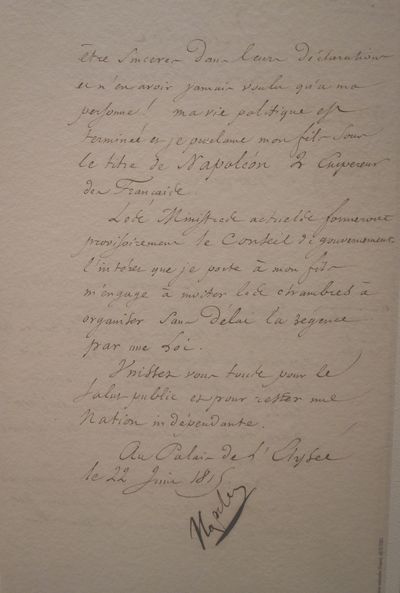 être sinceres dans leurs déclarations
et n'en avoir jamais voulu qu'a ma
personne! ma vie politique est
terminée et je proclame mon fils sous
le titre de Napoléon 2 Empereur
des Français.
Les Ministres actuels formeront
provisoirement le Conseil de gouvernement
l'intérêt que je porte à mon fils
m'engage à inviter les chambres à
organiser sans délai la regence
par une Loi.
Unissez vous tous pour le
salut public et pour rester une
Nation indépendante.
Au Palais de l'Elysée
le 22 Juin 1815